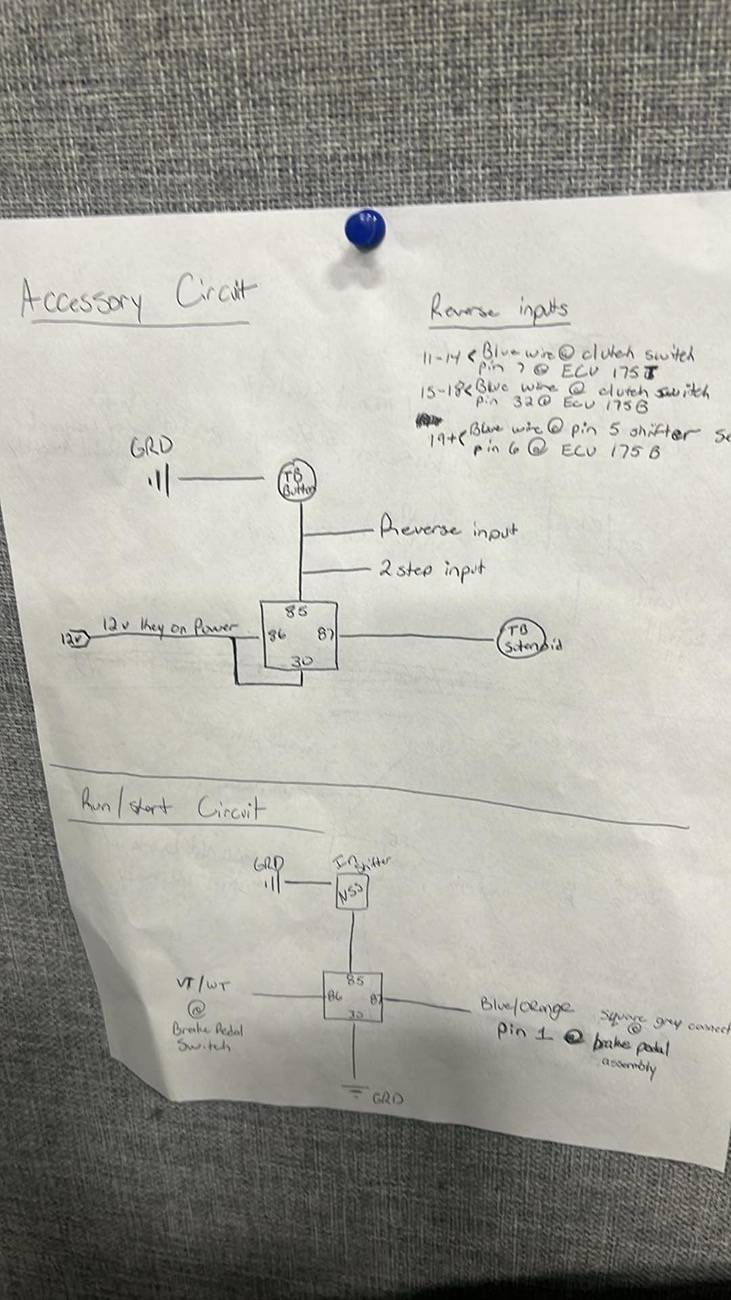 Accessory Circuit
Reverse inputs
11-14 < Blue wire @ clutch switch
pin 7 @ ECU 175 T
15-18 < Blue wire @ clutch switch
pin 32 @ ECU 175 B
19+ < Blue wire @ pin 5 shifter
pin 6 @ ECU 175 B
GRD
TB
Button
Reverse input
2 step input
85
12v
12v key on Power
86
87
30
TB
Solenoid
Run/start Circuit
GRD
In Shifter
NSS
85
86
87
30
VT/WT
@
Brake Pedal
Switch
Blue/Orange
Pin 1 @ brake pedal
assembly
square grey connect
@
GRD